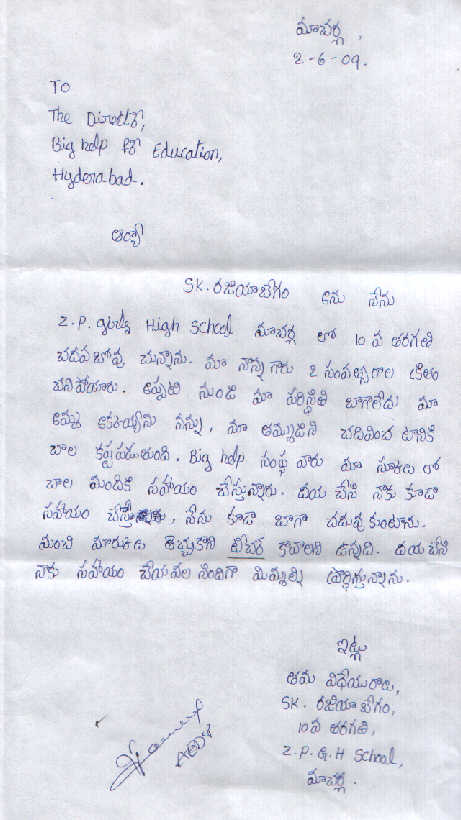 మాచర్ల,
2-6-09.
TO
The Director,
Big help for Education,
Hyderabad.
అయ్యా
SK. రజియాబేగం అను నేను
Z.P. girls High School మాచర్ల లో 10 వ తరగతి
చదవ బోవు చున్నాను. మా నాన్న గారు 2 సంవత్సరాల క్రితం
చనిపోయారు. అప్పటి నుండి మా పరిస్థితి బాగాలేదు మా
అమ్మ ఒకతయ్యిను నన్ను, మా తమ్ముడిని చదివించ టానికి
చాల కష్టపడుతుంది. Big help సంస్థ వారు మా స్కూలు లో
చాల మందికి సహాయం చేస్తున్నారు. దయ చేసి నాకు కూడా
సహాయం చేస్తే, నేను కూడా బాగా చదువు కుంటాను.
మంచి మార్కులు తెచ్చుకొని టీచర్ కావాలని ఉన్నది. దయచేసి
నాకు సహాయం చేయవల సిందిగా మిమ్మల్ని ప్రార్థిస్తున్నాను.
ఇట్లు
తమ విధేయురాలు,
SK. రజియా బేగం,
10 వ తరగతి,
Z.P.G.H School,
మాచర్ల.